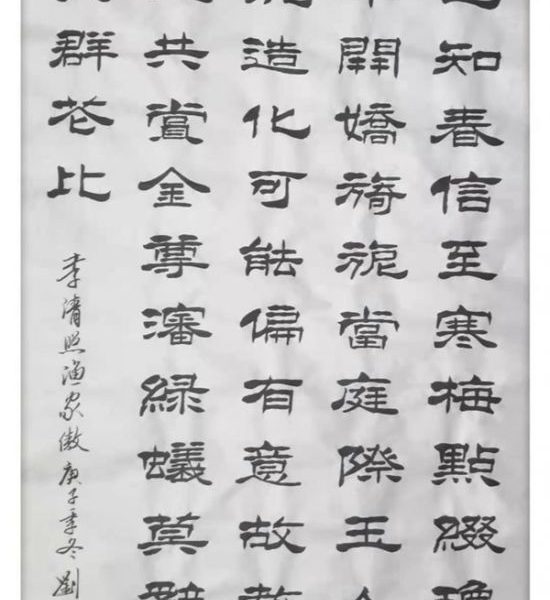 知春信至寒梅點綴瓊
開嬌旖旎當庭際玉人
造化可能偏有意故教
共賞金尊瀋綠蟻莫辭
群花比
李清照漁家傲庚子季冬劉